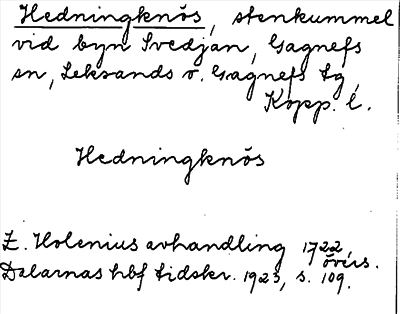 Hedningknös, stenkummel
vid byn Svedjan, Gagnefs
sn, Leksands o. Gagnefs tg,
Kopp. l.
Hedningknös
Z. Holenius avhandling 1722,
övers.
Dalarnas hbf tidskr. 1923, s. 109.